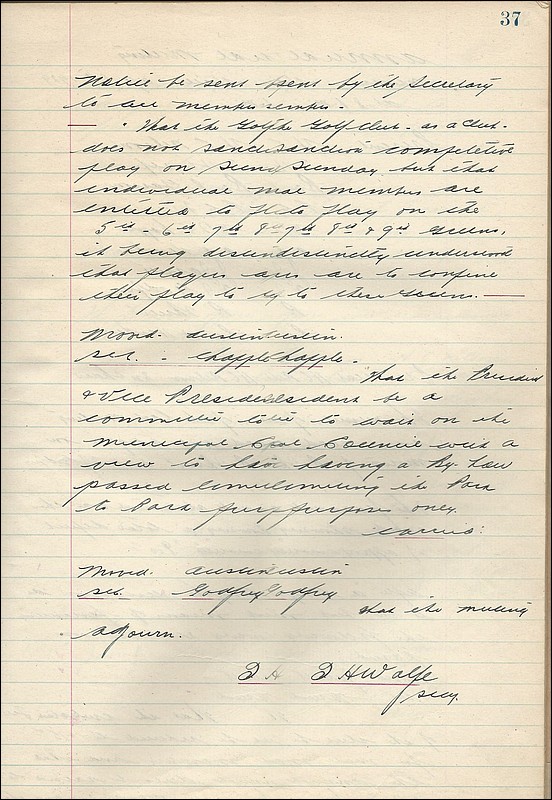 37
Notice be sent sent by the Secretary
to all members members -
— "That the Golf the Golf Club - as a Club -
does not sanc sanction competitive
play on Sund Sunday but that
individual mal members are
entitled to pl to play on the
5th - 6th 7th 8th 7th 8th & 9th Greens,
it being distin distinctly understood
that players are are to confine
their play to th to these Greens. —
Moved - Austin Austin.
Sec. - Chapple Chapple -
That the President
& Vice Preside President be a
committee to to wait on the
Municipal Coun Council with a
view to hav having a By-Law
passed limi limiting the Park
to Park purp purposes only.
Carried.
Moved. Austin Austin
Sec. Godfrey Godfrey
that the meeting
adjourn.
D H D H Wolfe
Secy.